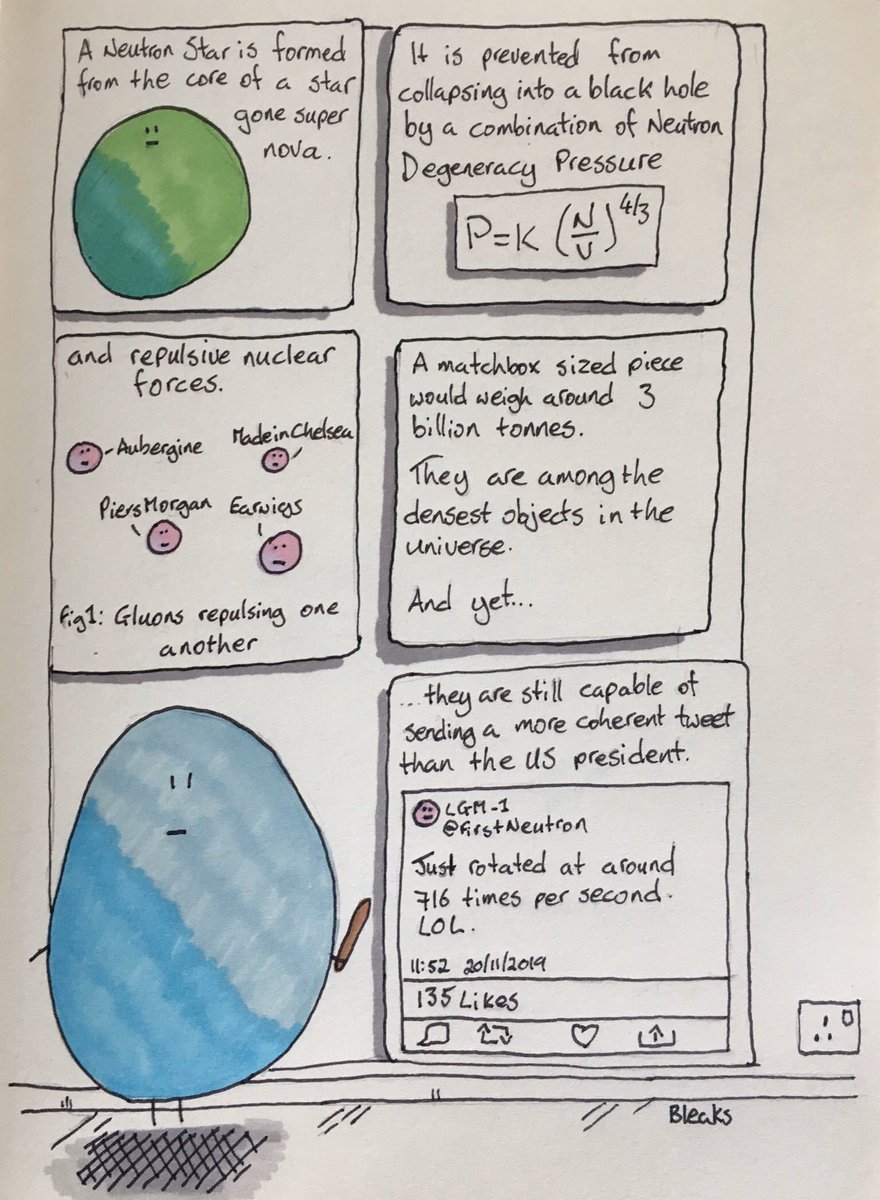 A Neutron Star is formed
from the core of a star
gone super
nova.
It is prevented from
collapsing into a black hole
by a combination of Neutron
Degeneracy Pressure
P=K (N/V)^4/3
and repulsive nuclear
forces.
Aubergine
MadeinChelsea
PiersMorgan
Earwigs
Fig1: Gluons repulsing one
another
A matchbox sized piece
would weigh around 3
billion tonnes.
They are among the
densest objects in the
universe.
And yet...
...they are still capable of
sending a more coherent tweet
than the US president.
LGM-1
@FirstNeutron
Just rotated at around
716 times per second.
LOL.
11:52 20/11/2019
135 Likes
Bleaks